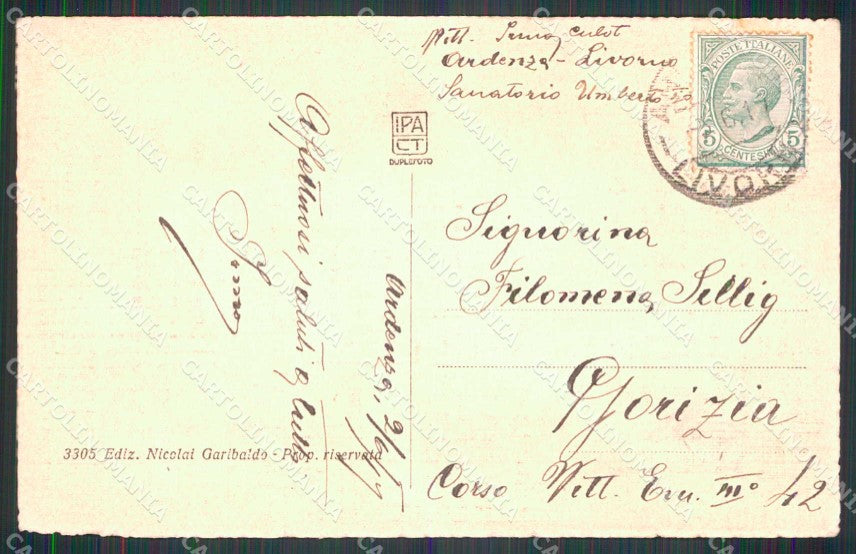 Mitt. Irma Culot
Ardenza - Livorno
Sanatorio Umberto Iº
POSTE ITALIANE
5 5
CENTESIMI
LIVORNO
IPA
CT
DUPLEFOTO
Affettuosi saluti a tutti
Irma
Ardenza, 2/6/
Signorina
Filomena Sellig
Gorizia
Corso Vitt. Em. IIIº 42
3305 Ediz. Nicolai Garibaldo - Prop. riservata
CARTOLINOMANIA